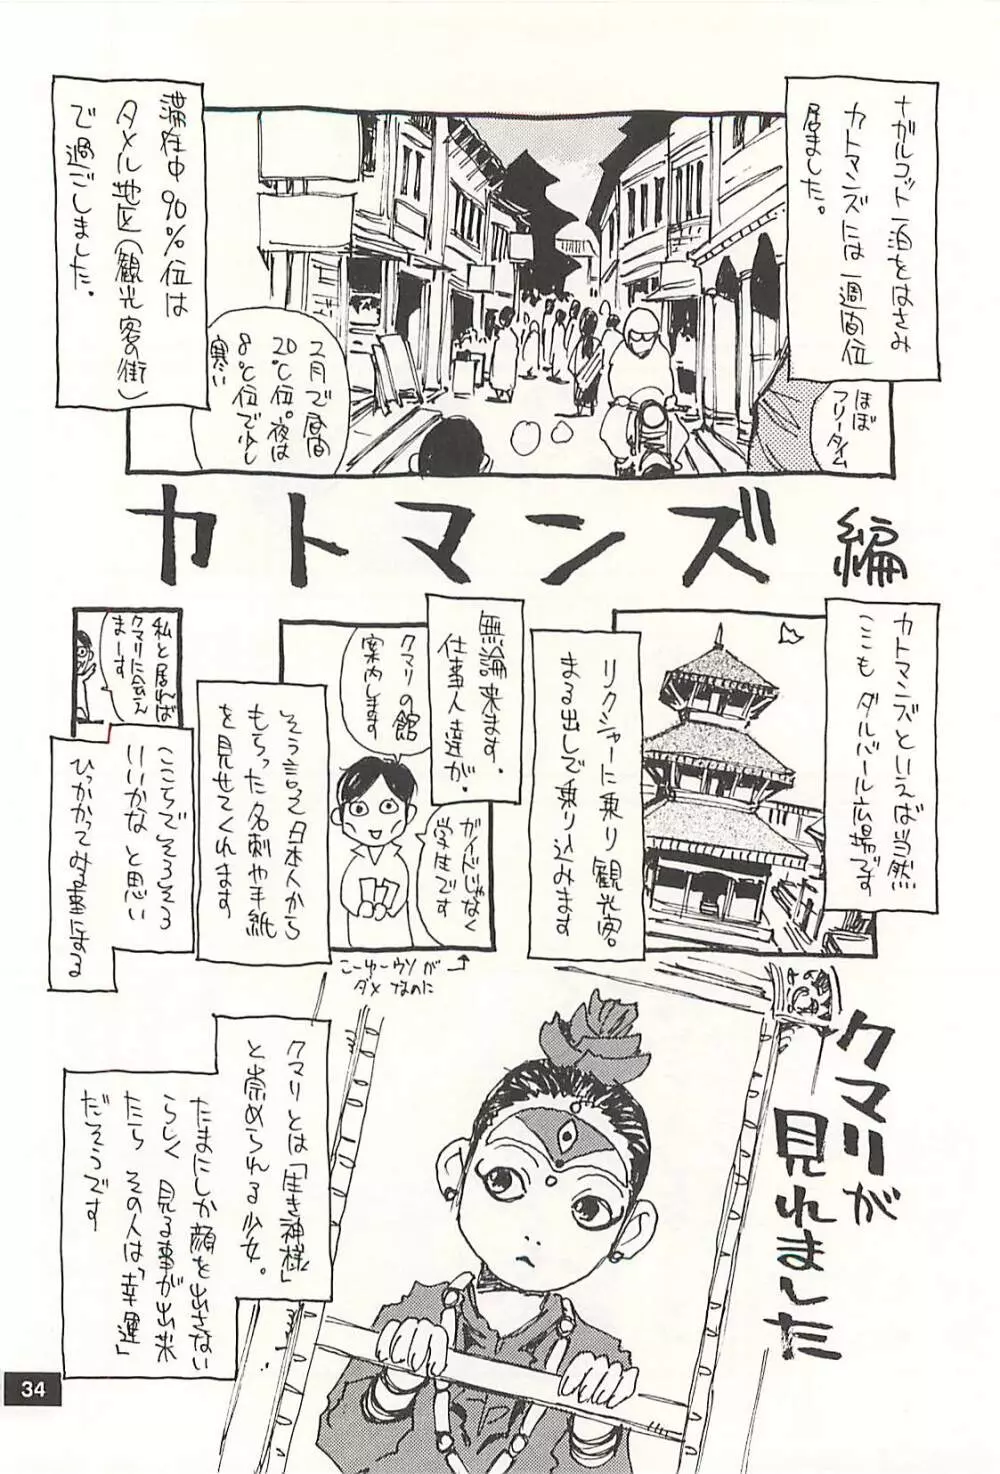 ナガルコット一泊をはさみ
カトマンズには一週間位
居ました。
ほぼ
フリータイム
2月で昼間
20℃位。夜は
8℃位で少し
寒い
滞在中90%位は
タメル地区(観光客の街)
で過ごしました。
カトマンズ 編
カトマンズといえば当然
ここもダルバール広場です
リクシャーに乗り観光客。
まる出しで乗り込みます
無論来ます。
仕事人達が。
クマリの館
案内します
ガイドじゃなく
学生です
こーゆーウソが
ダメなのに
そう言って日本人から
もらった名刺や手紙
を見せてくれます
私と居れば
クマリに会え
まーす
ここらでそろそろ
いいかなと思い
ひっかかってみる事にする
クマリが
見れました
クマリとは「生き神様」
と崇められる少女。
たまにしか顔を出さない
らしく 見る事が出来
たら その人は「幸運」
だそうです
34